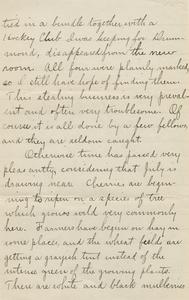 tied in a bundle together with a
Hockey Club I was keeping for Drum-
mond, disappeared from the mew
room. All four were plainly marked,
so I still have hope of finding them.
This stealing business is very preval-
ent and often very troublesome. Of
course it is all done by a few fellows
and they are seldom caught.
Otherwise time has passed very
pleasantly, considering that July is
drawing near. Cherries are begin-
ning to ripen on a species of tree
which grows wild very commonly
here. Farmers have begun on hay in
some places, and the wheat fields are
getting a grayish tint instead of the
intense green of the growing plants.
There are white and black mulberries